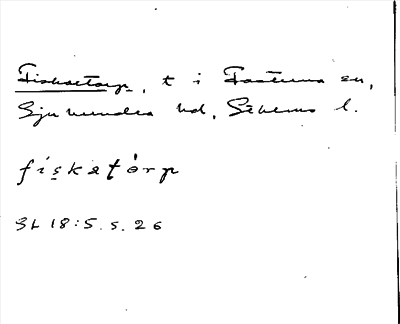 Fisketorp, t i Fasterna sn,
Sjuhundra hd, Sthlms l.
fisketorp
SL 18:5. s. 26